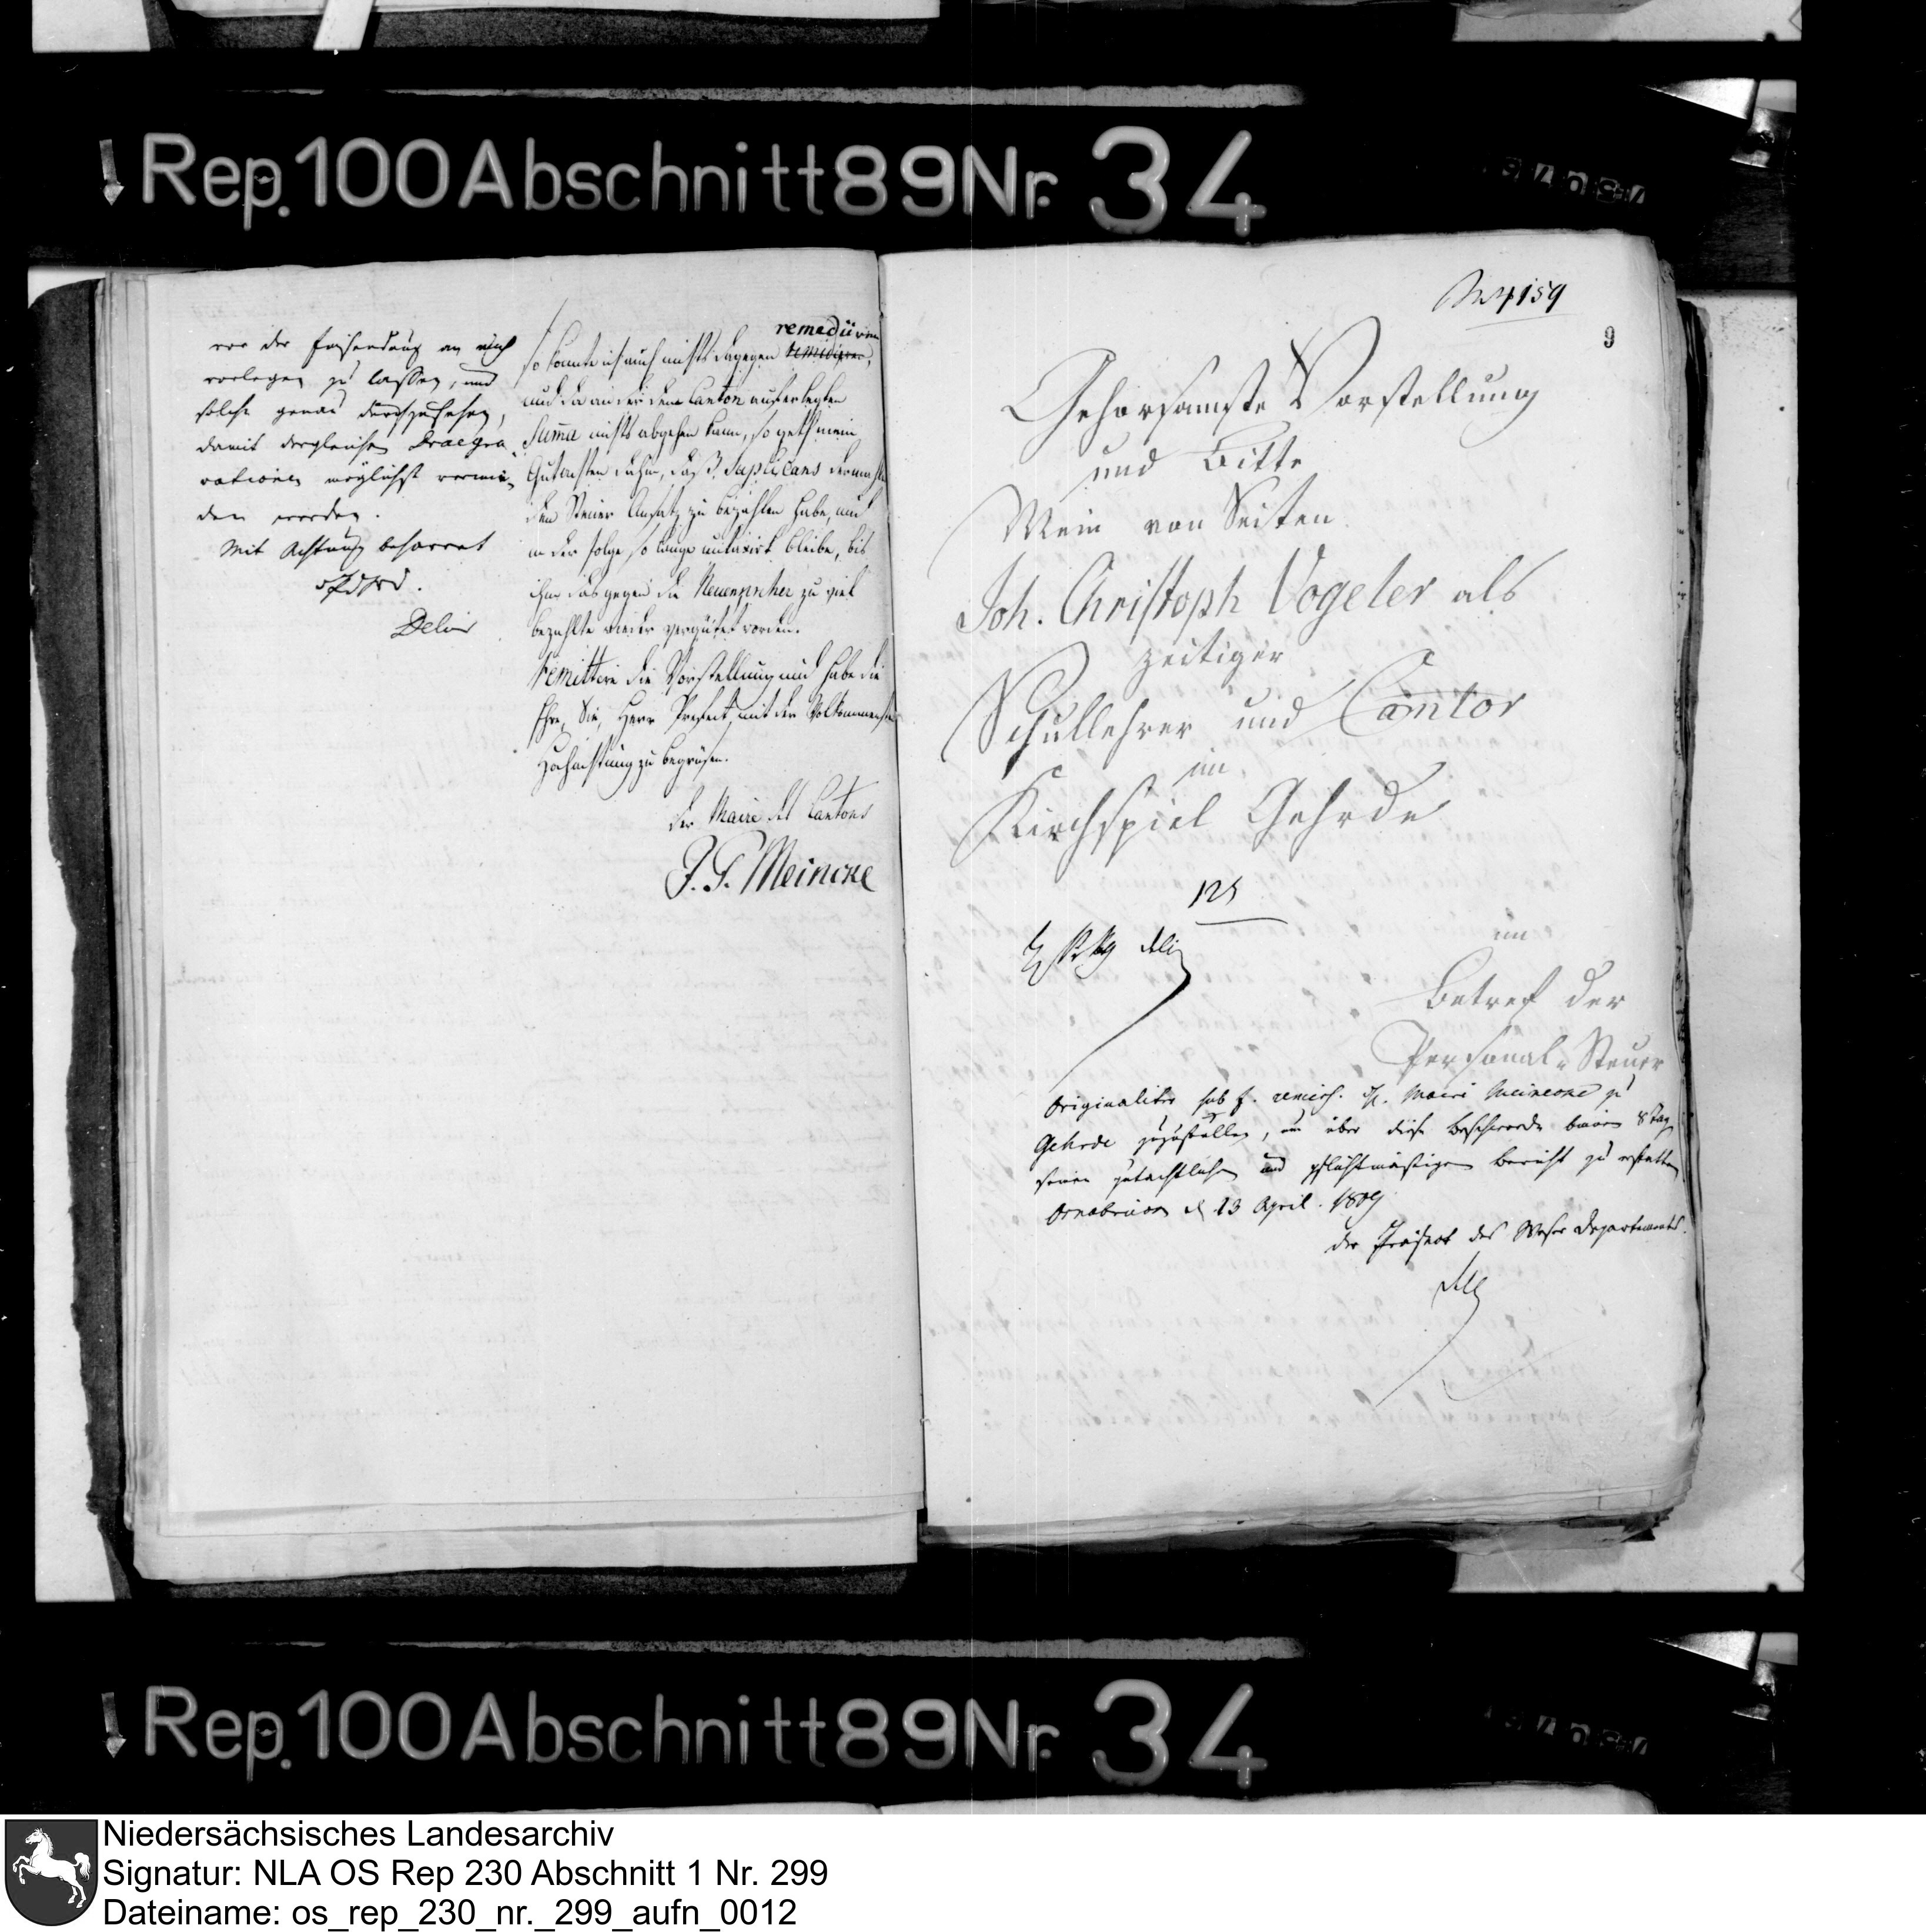 Rep. 100 Abschnitt 89 Nr. 34
vor der Einsendung an mich
vorlegen zu lassen, und
solche genau durchzusehen,
damit dergleichen Praegra-
vationen möglichst vermie-
den werden.
Mit Achtung beharret
Delius
remediiren
so konnte ich auch nichts dagegen remediiren,
und da an der dem Canton auferlegten
Summa nichts abgehen kann, so geht mein
Gutachten dahin, daß Supplicans
den Steuer Ansatz zu bezahlen habe, und
in der Folge so lange untaxirt bleibe, bis
ihm das gegen die zu viel
bezahlte wieder vergütet worden.
Remittire die Vorstellung und habe die
Ehre, Sie, Herr Prefect, mit der Volkommensten
Hochachtung zu begrüsen.
Der Maire des Cantons
J. G. Meincke
4159
9
Gehorsamste Vorstellung
und Bitte
Mein von Seiten
Joh. Christoph Vogeler als
zeitiger
Schullehrer und Cantor
im
Kirchspiel Gehrde
125
im
Betref der
Personal-Steuer
Originaliter sub f. remiss. Maire Meinecke zu
Gehrde zuzustellen, um über diese Beschwerde binnen 8 Tag
seinen gutachtlichen und pflichtmäßigen Bericht zu erstatten
Osnabrück d. 13 April. 1809
Der Präfect des Weser Departements.
Rep. 100 Abschnitt 89 Nr. 34
Niedersächsisches Landesarchiv
Signatur: NLA OS Rep 230 Abschnitt 1 Nr. 299
Dateiname: os_rep_230_nr._299_aufn_0012